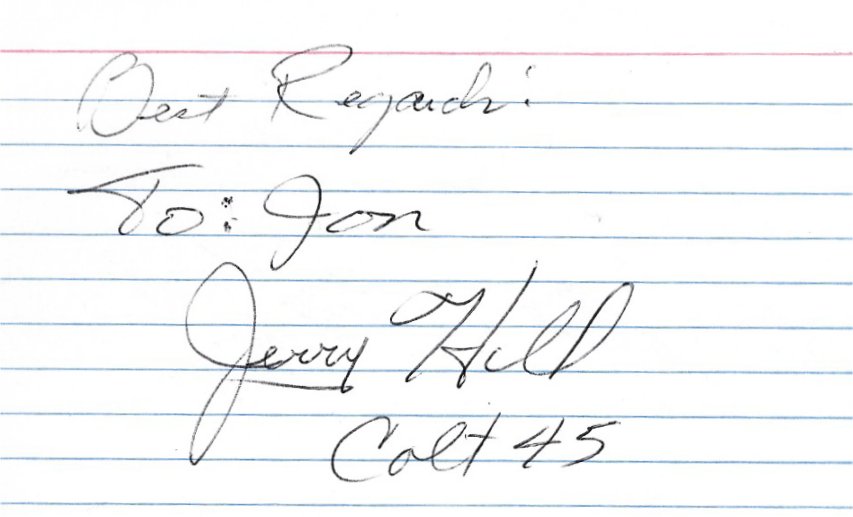 Best Regards:
To: Jon
Jerry Hill
Colt 45